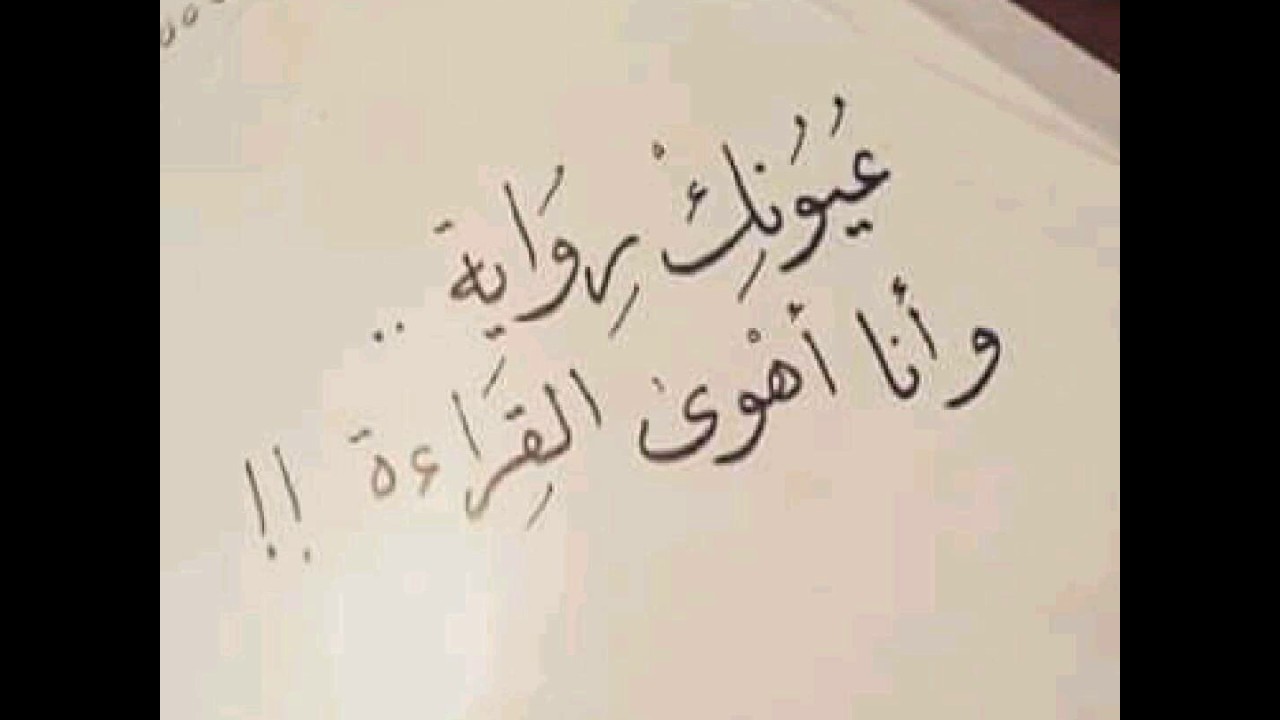 عُيُونِكْ رِوَاية ..
و أنا أهْوىٰ القِرَاءة !!